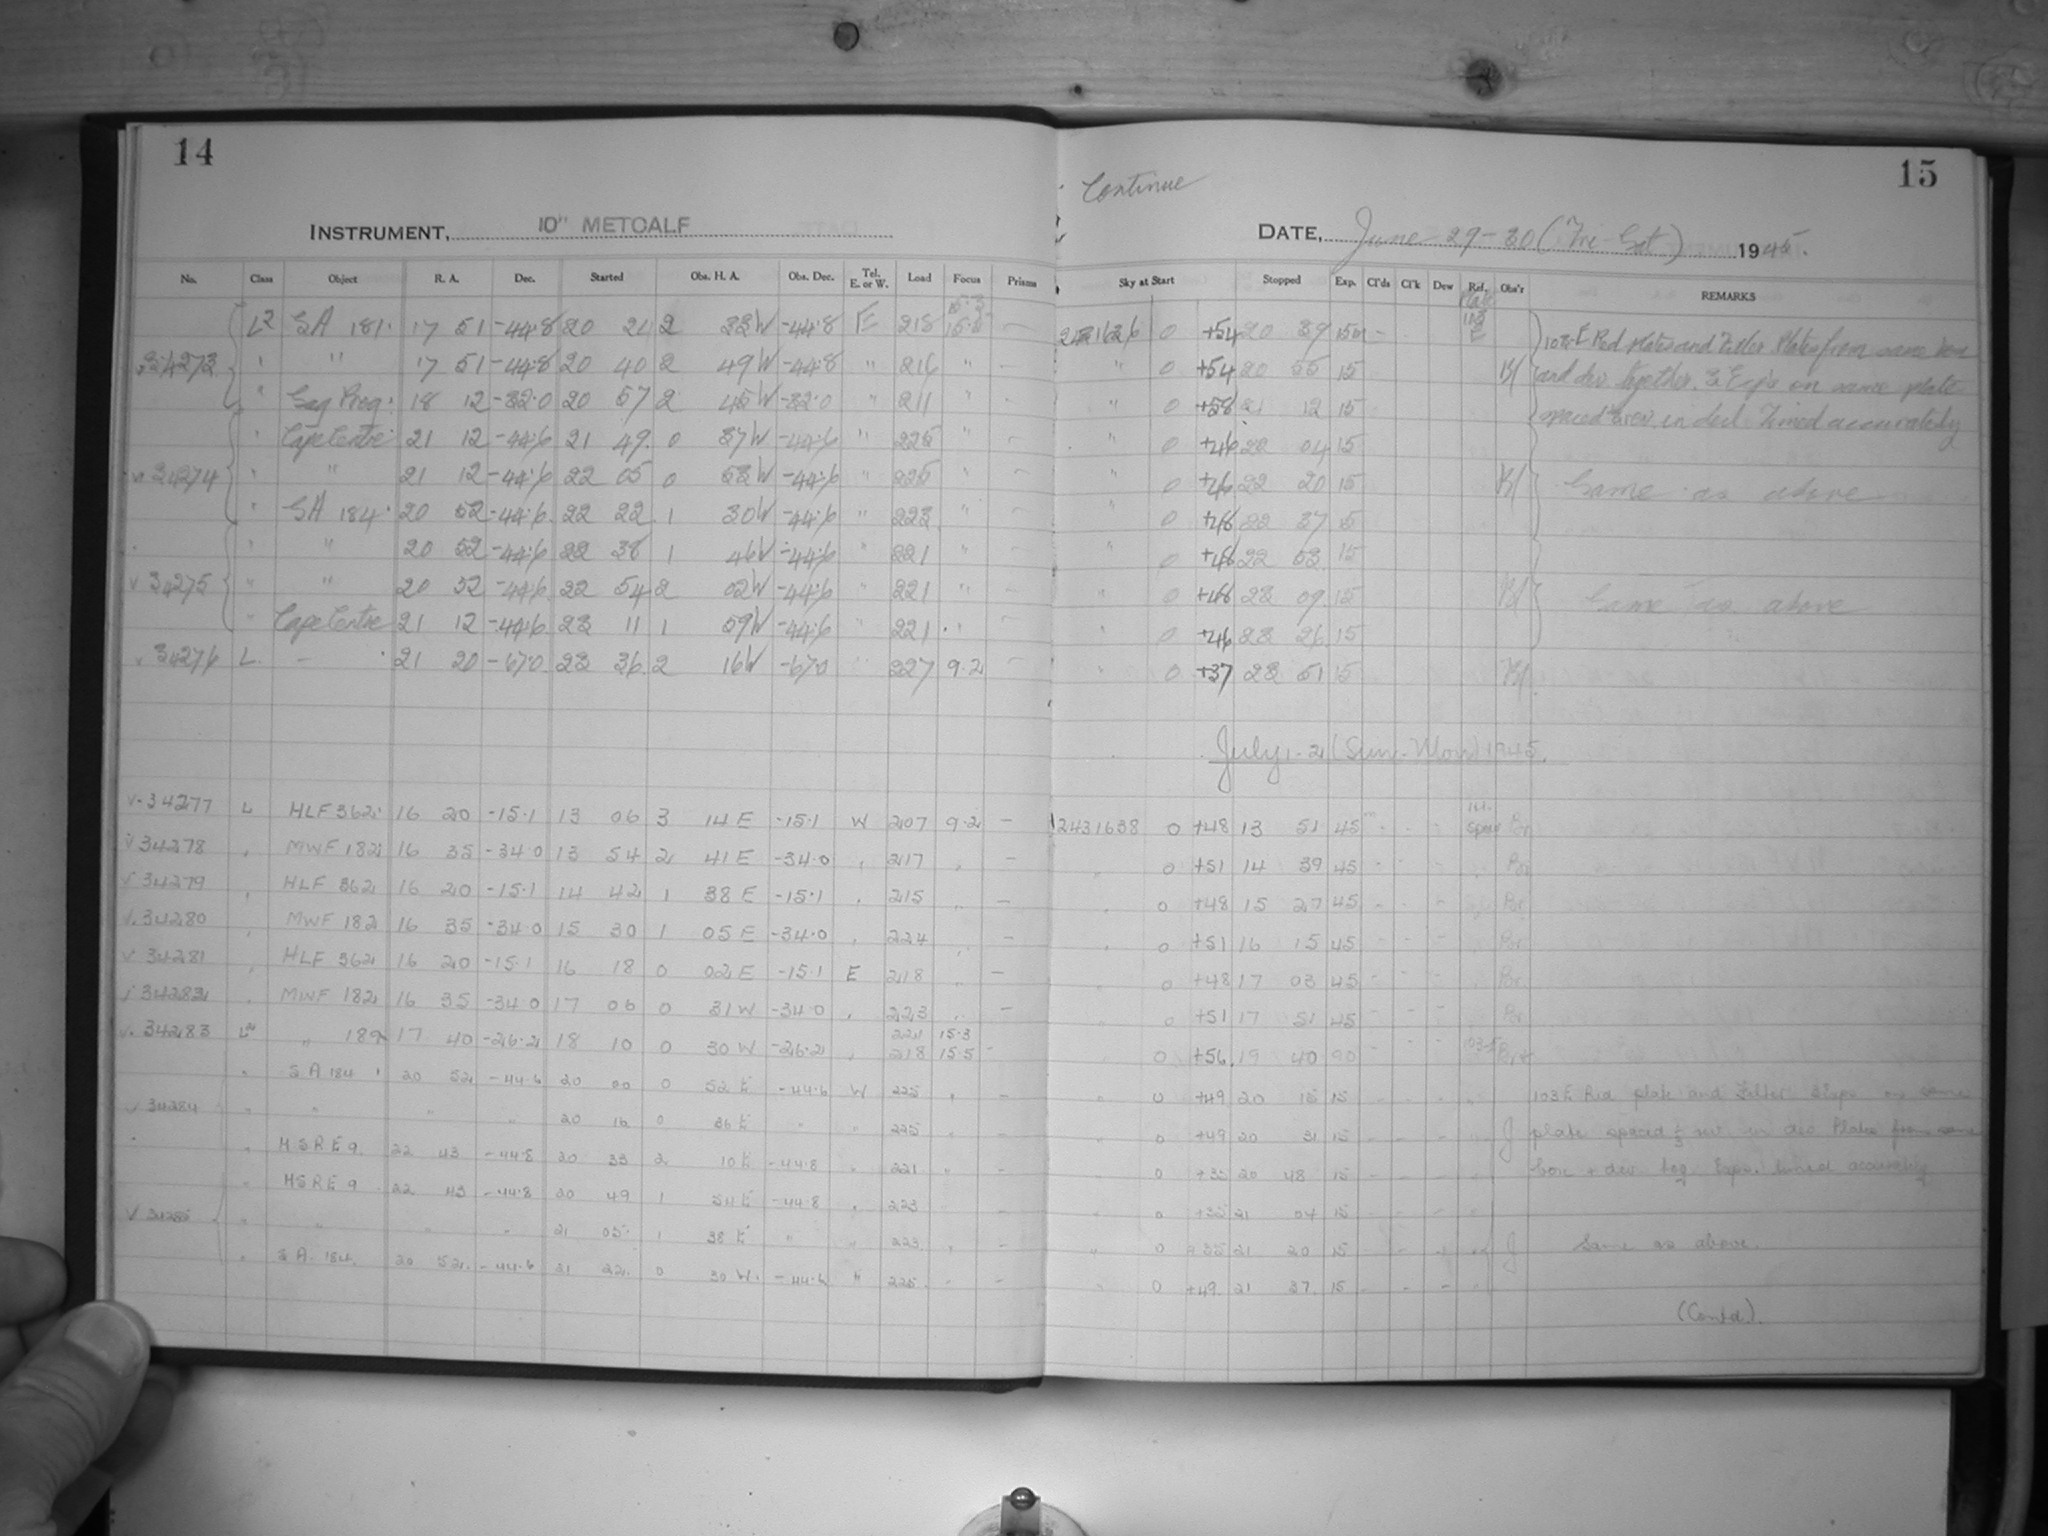 14
INSTRUMENT, 10" METCALF
No. Class Object R. A. Dec. Started Obs. H. A. Obs. Dec. Tel. E. or W. Load Focus Prisms
L2 SA 181 17 51 -44.8 20 24 2 33W -44.8 E 218
34273 " " 17 51 -44.8 20 40 2 49W -44.8 " 216 "
" 18 12 -32.0 20 57 2 45W -32.0 " 211 "
" Cape Centre 21 12 -44.6 21 49 0 37W -44.6 " 225 "
v 34274 " " 21 12 -44.6 22 05 0 53W -44.6 " 225 "
" SA 184 20 52 -44.6 22 22 1 30W -44.6 " 223 "
" " 20 52 -44.6 22 38 1 46W -44.6 " 221 "
v 34275 " " 20 52 -44.6 22 54 2 02W -44.6 " 221 "
" Cape Centre 21 12 -44.6 23 11 1 59W -44.6 " 221 "
v 34276 L – 21 20 -67.0 23 36 2 16W -67.0 " 227 9.2
v 34277 L HLF 362 16 20 -15.1 13 06 3 14 E -15.1 W 207 9.2 –
v 34278 " MWF 182 16 35 -34.0 13 54 2 41 E -34.0 " 217 " –
v 34279 " HLF 362 16 20 -15.1 14 42 1 38 E -15.1 " 215 " –
v 34280 " MWF 182 16 35 -34.0 15 30 1 05 E -34.0 " 224 " –
v 34281 " HLF 362 16 20 -15.1 16 18 0 02 E -15.1 E 218 " –
" MWF 182 16 35 -34.0 17 06 0 31 W -34.0 " 223 " –
v 34283 " 189 17 40 -26.2 18 10 0 30 W -26.2 " 221 218 15.3 15.5 –
" SA 184 20 52 -44.6 20 00 0 52 E -44.6 W 225 " –
v 34284 " " " " 20 16 0 36 E " " 225 " –
" HSRE 9 22 43 -44.8 20 33 2 10 E -44.8 " 221 " –
" HSRE 9 22 43 -44.8 20 49 1 54 E -44.8 " 223 –
v 34285 " " " " 21 05 1 38 E " " 223 " –
" SA 184 20 52 -44.6 21 22 0 30 W -44.6 " 225 –
Continue
15
DATE, June 29-30 (Fri-Sat) 1945.
Sky at Start Stopped Exp. Cl'ds Cl'k Dew Ref. Obs'r REMARKS
0 +54 20 39 15m Red plates and Filter Plates from same box
" 0 +54 20 55 15 and dev together. 3 Exp's on same plate
" 0 +58 21 12 15 in decl Timed accurately
" 0 +46 22 04 15
" 0 +46 22 20 15 Same as above
" 0 +48 22 37 15
" 0 +48 22 53 15
" 0 +48 23 09 15 Same as above
" 0 +46 23 26 15
" 0 +37 23 51 15
July 1-2 (Sun-Mon) 1945.
2431638 0 +48 13 51 45 Br
" 0 +51 14 39 45 Br
" 0 +48 15 27 45 Br
" 0 +51 16 15 45 Br
" 0 +48 17 03 45 Br
" 0 +51 17 51 45 Br
0 +56 19 40 90
" 0 +49 20 15 15 103 E Red plate and Filter 3 Exps on same
" 0 +49 20 31 15 J plate spaced in dec Plates from same
" 0 +35 20 48 15 box & dev tog. Exps. timed accurately
" 0 +35 21 04 15
" 0 +35 21 20 15 J Same as above.
" 0 +49 21 37 15
(Contd.).